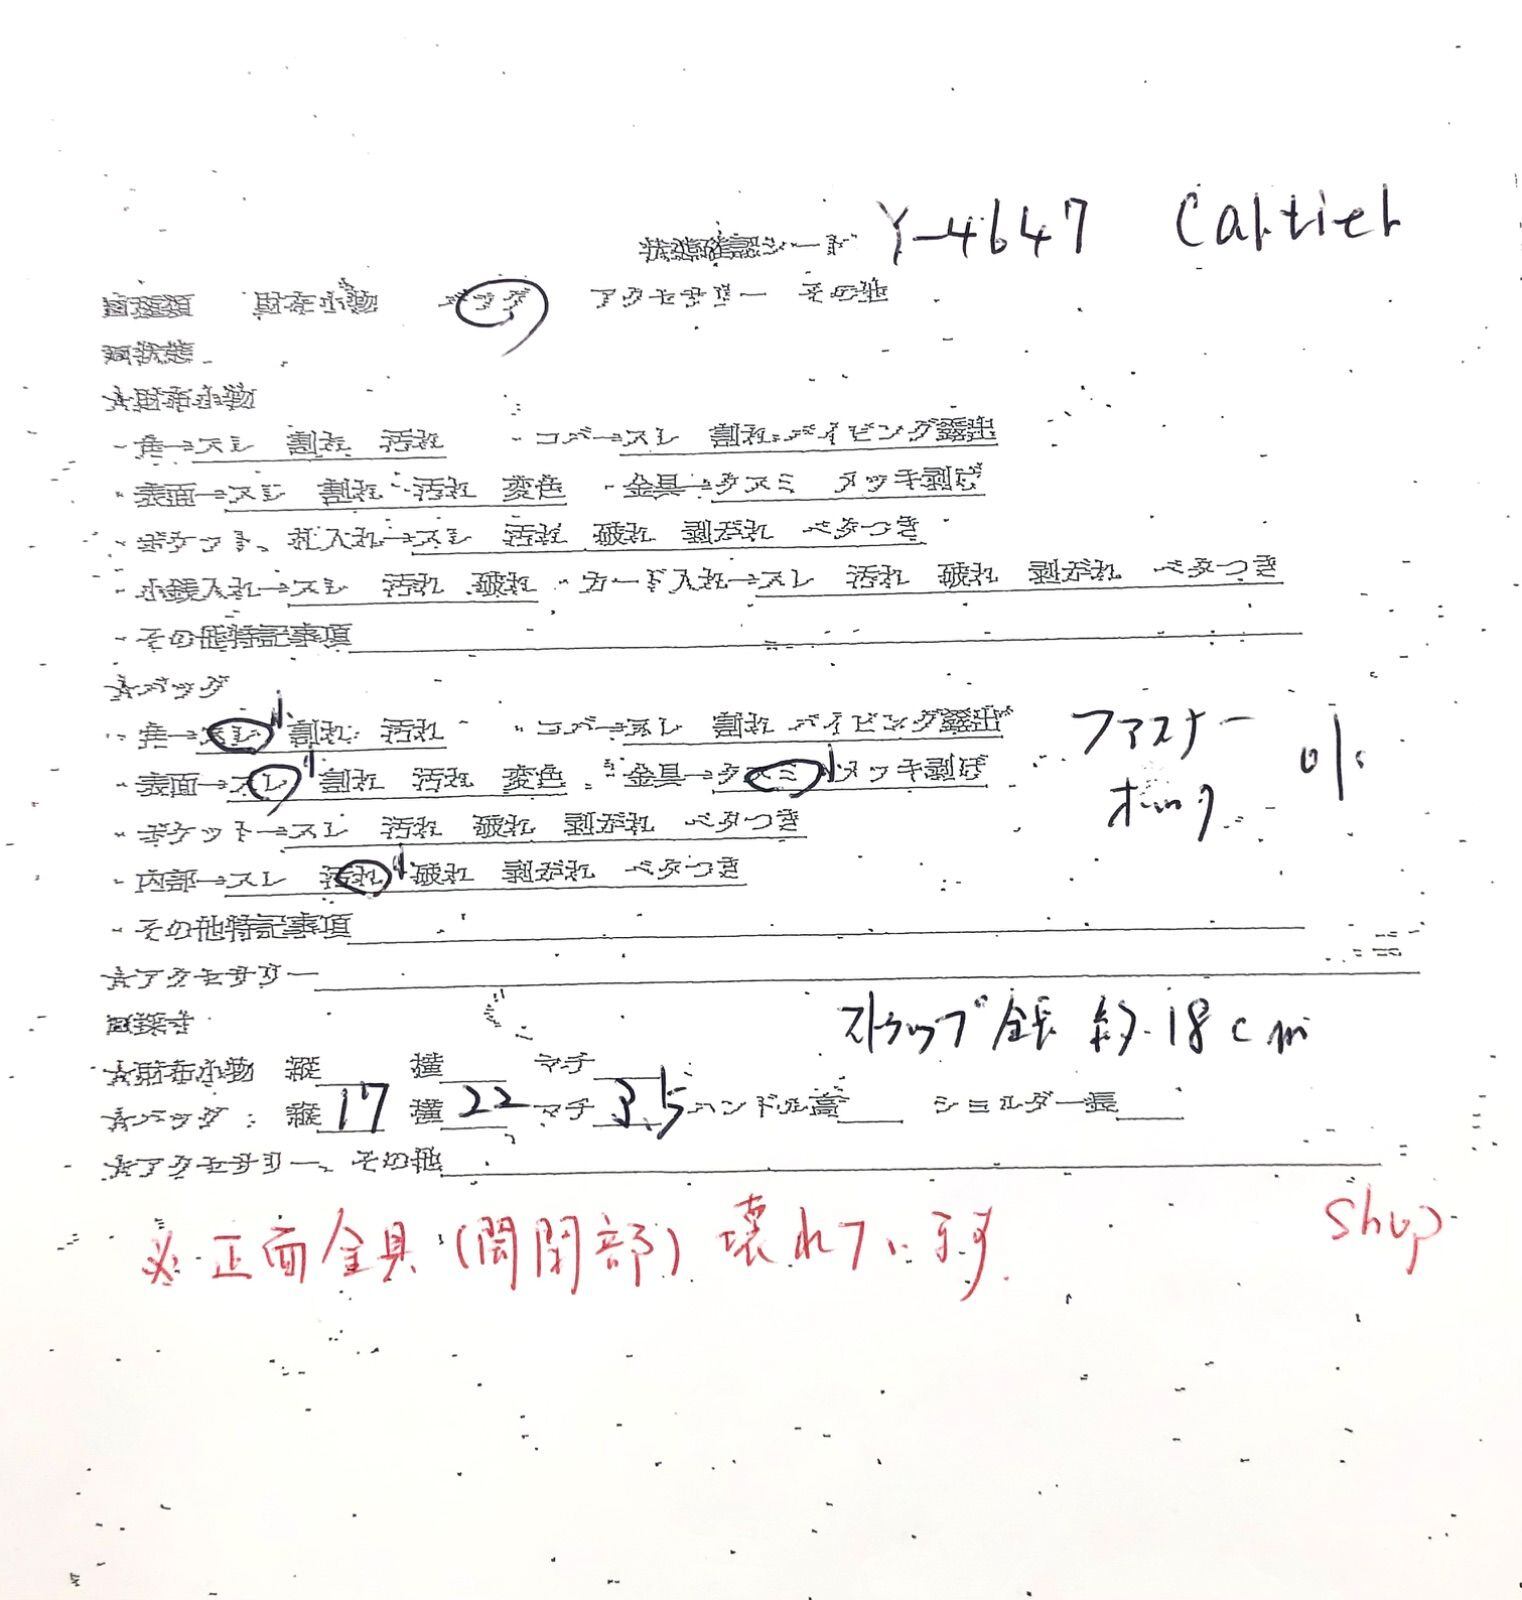 状態確認シート Y-4647 Cartier
■種類 財布小物 バッグ アクセサリー その他
■状態
☆財布小物
・角→スレ 割れ 汚れ ・コバ→スレ 割れ パイピング露出
・表面→スレ 割れ 汚れ 変色 ・金具→クスミ メッキ剥げ
・ポケット、札入れ→スレ 汚れ 破れ 剥がれ ベタつき
・小銭入れ→スレ 汚れ 破れ ・カード入れ→スレ 汚れ 破れ 剥がれ ベタつき
・その他特記事項
☆バッグ
・角→スレ 割れ 汚れ ・コバ→スレ 割れ パイピング露出
ファスナー
・表面→スレ 割れ 汚れ 変色 ・金具→クスミ メッキ剥げ
ホック
・ポケット→スレ 汚れ 破れ 剥がれ ベタつき
・内部→スレ 汚れ 破れ 剥がれ ベタつき
・その他特記事項
☆アクセサリー
■採寸
ストラップ 全長 約 18cm
☆財布小物 縦 横 マチ
☆バッグ: 縦 17 横 22 マチ 3.5 ハンドル高 ショルダー長
☆アクセサリー、その他
※正面金具(開閉部)壊れています
shop